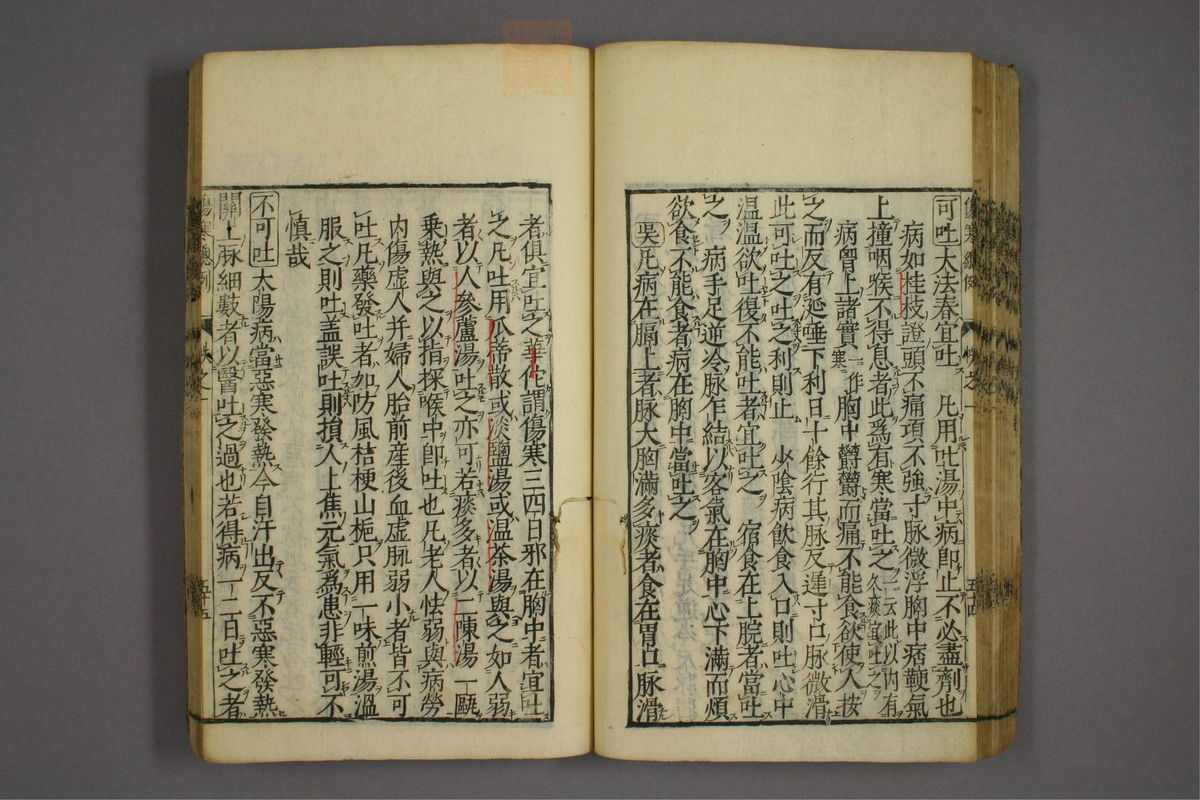 可吐 大法春宜吐 凡用吐湯中病卽止不必盡劑也
病如桂枝證頭不痛項不強寸脉微浮胸中痞鞕氣
上撞咽喉不得息者此爲有寒當吐之一云此以內有久痰宜吐之
病胷上諸實一作寒胸中鬱鬱而痛不能食欲使人按
之而反有涎唾下利日十餘行其脉反遲寸口脉微滑
此可吐之吐之利則止 少陰病飲食入口則吐心中
温温欲吐復不能吐者宜吐之 宿食在上脘者當吐
之 病手足逆冷脉乍結以客氣在胸中心下滿而煩
欲食不能食者病在胸中當吐之
吳凡病在膈上者脉大胸滿多痰者食在胃口脉滑
者俱宜吐之華佗謂傷寒三四日邪在胸中者宜吐
之凡吐用瓜蒂散或淡鹽湯或温茶湯與之如人弱
者以人參蘆湯吐之亦可若痰多者以二陳湯一甌
乗熱與之以指探喉中卽吐也凡老人怯弱與病勞
內傷虚人并婦人胎前産後血虚脉弱小者皆不可
吐凡藥發吐者如防風桔梗山梔只用一味煎湯温
服之則吐盖誤吐則損人上焦元氣爲患非輕可不
慎哉
不可吐 太陽病當惡寒發熱今自汗出反不惡寒發熱
關上脉細數者以醫吐之過也若得病一二日吐之者
傷寒總例
卷之一
五十四
五十五